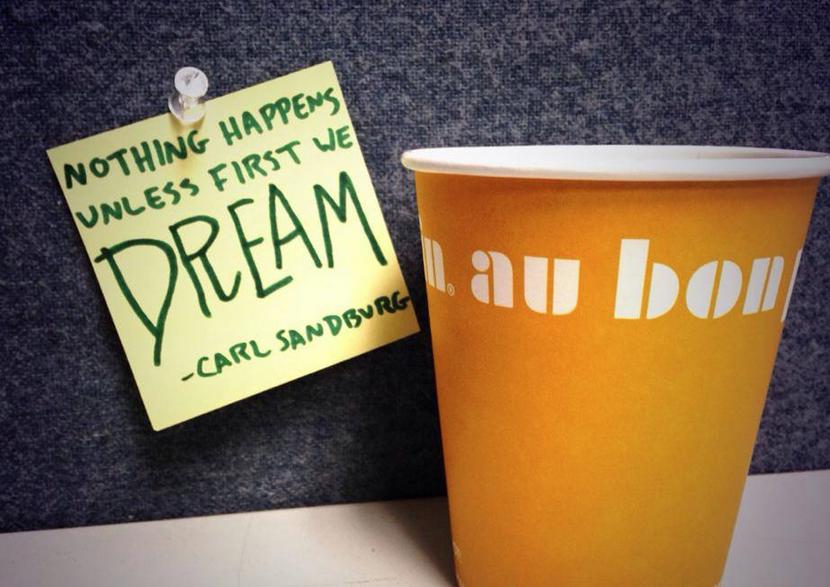 NOTHING HAPPENS
UNLESS FIRST WE
DREAM
-CARL SANDBURG
n® au bon